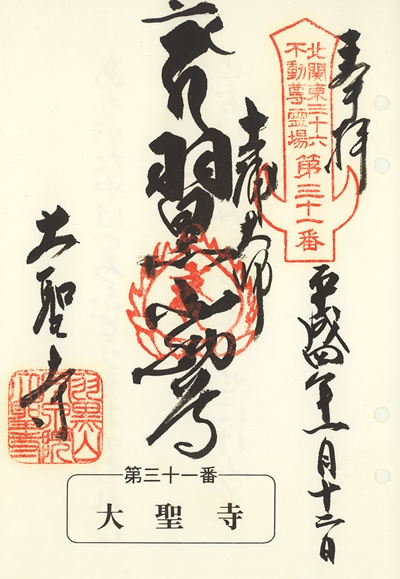 奉拝
北關東三十六
不動尊霊場
第三十一番
平成四年一月十二日
大師
羽黒不動尊
大聖寺
羽黒山
第三十一番
大聖寺